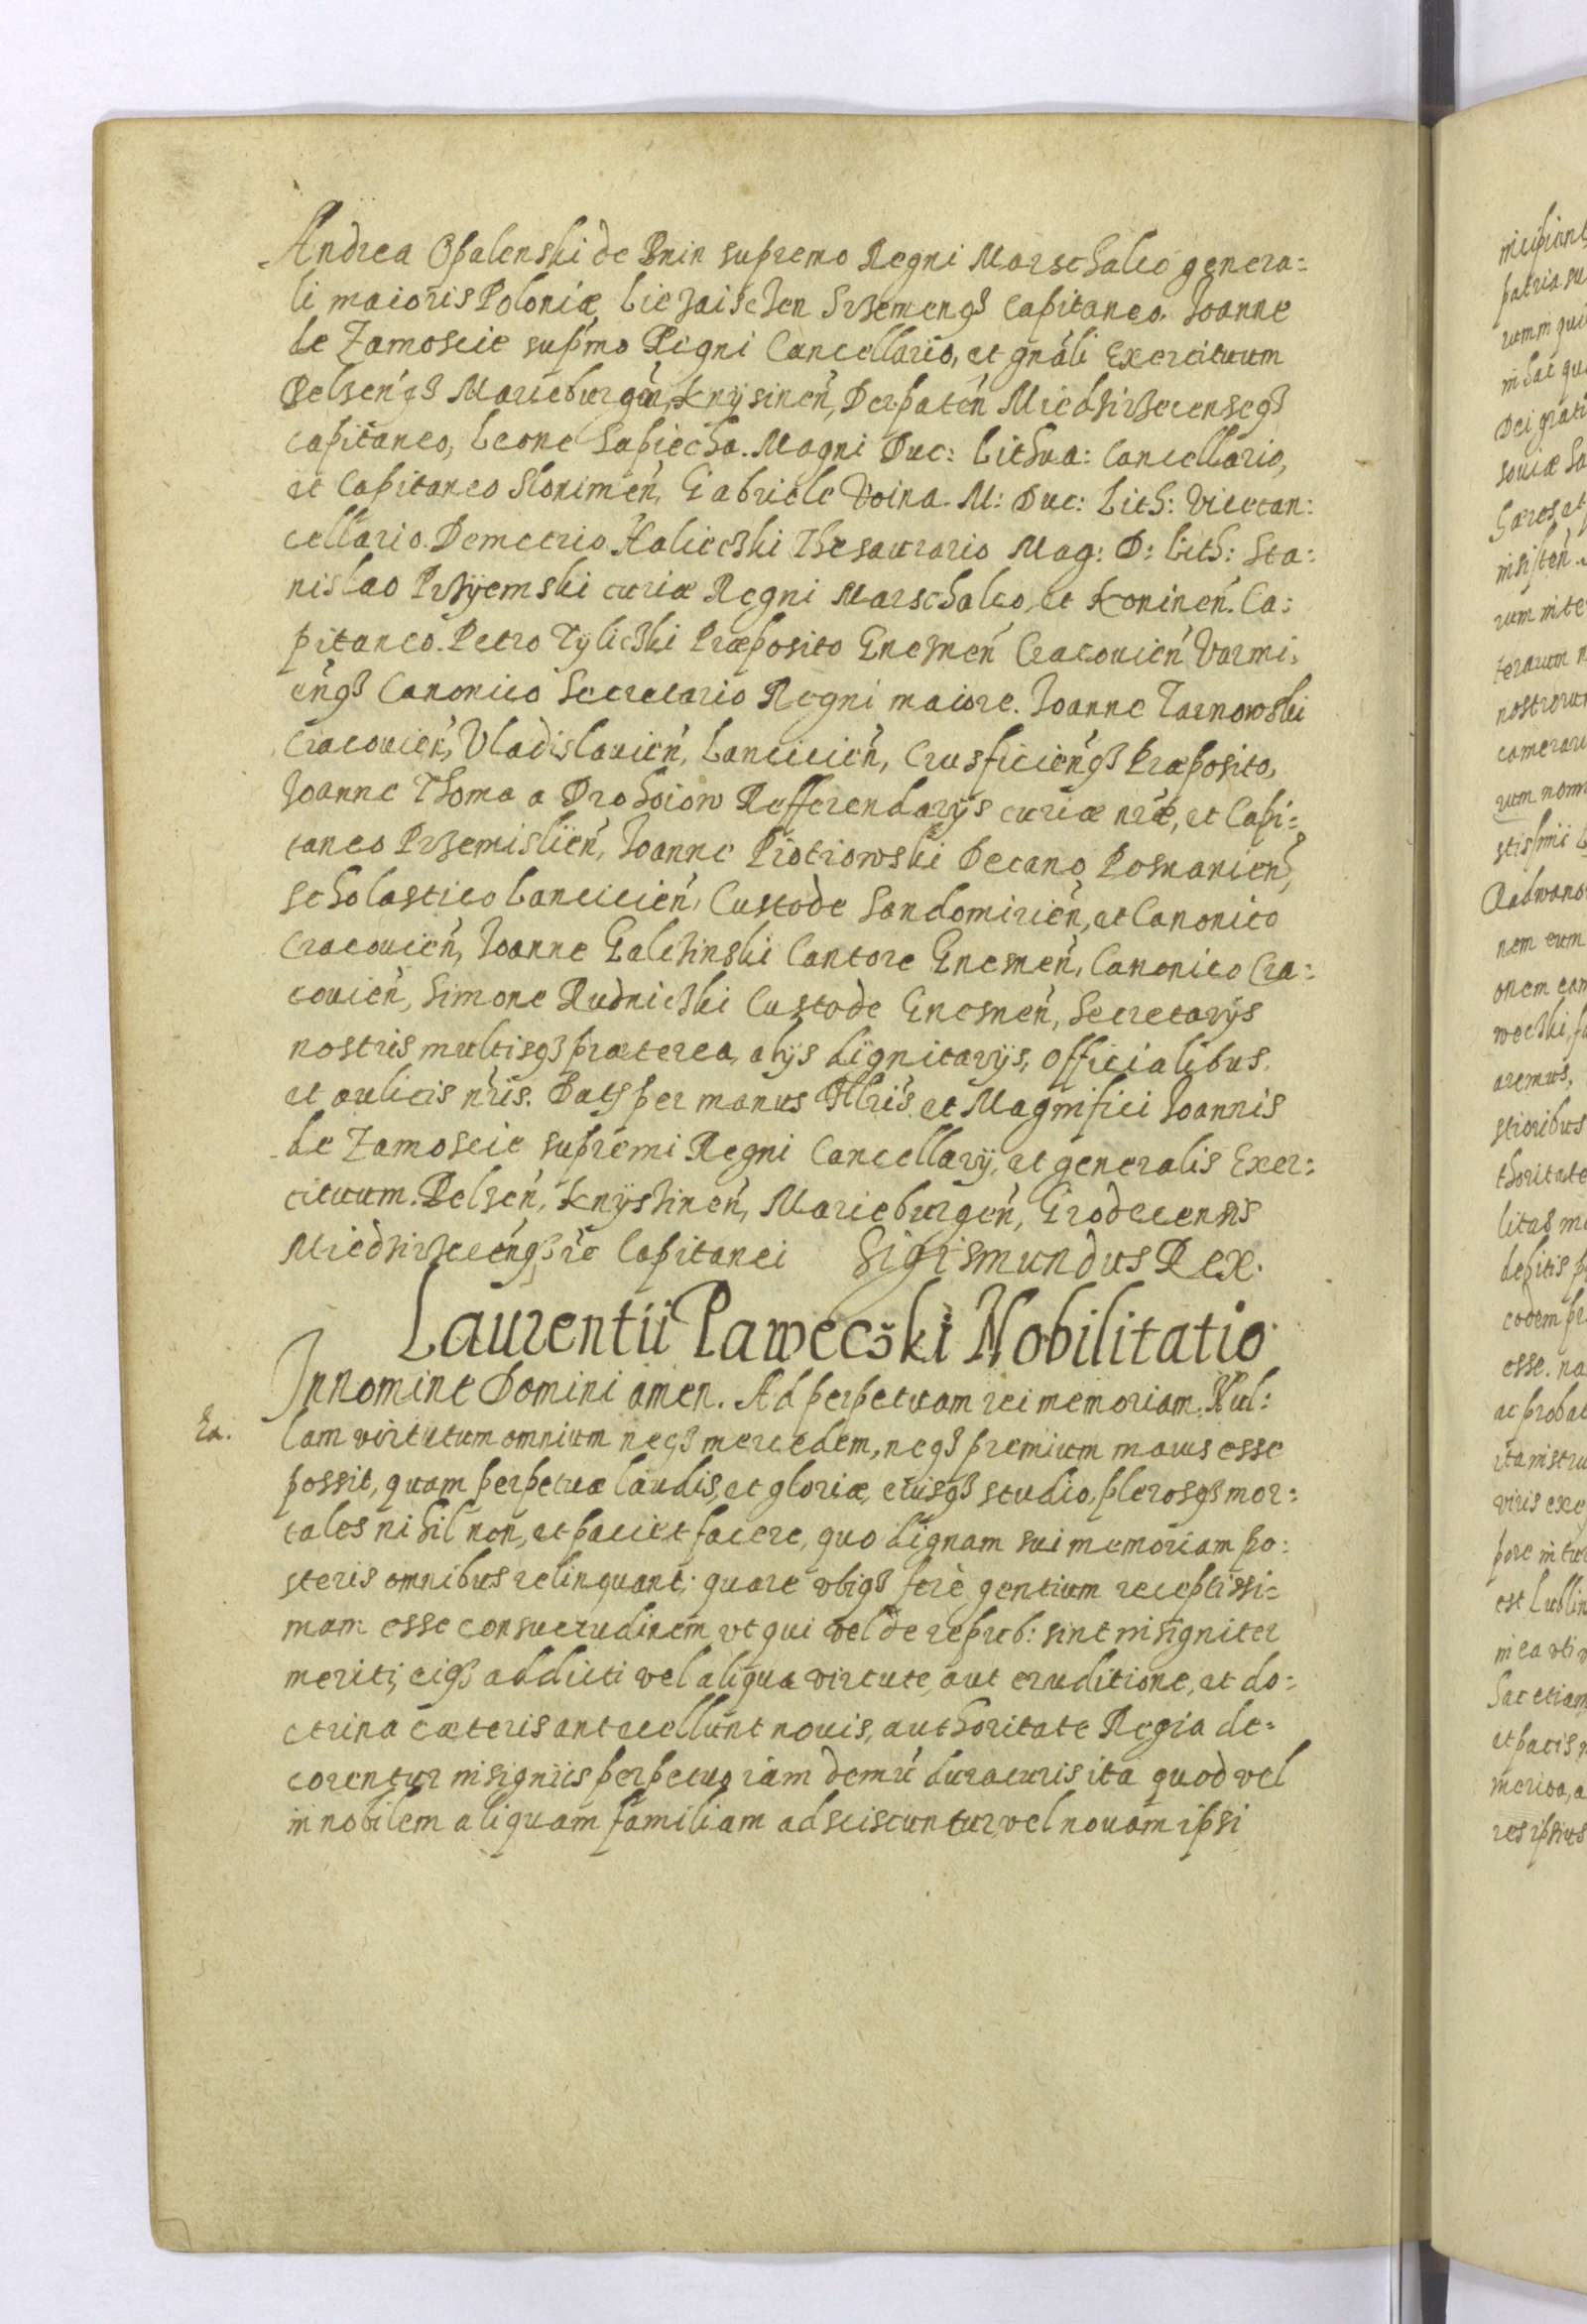 Andrea Opalenski de Bnin supremo Regni Marschalco genera:
li maioris Poloniæ, Liezaischen Srzemenqz Capitaneo. Ioanne
de Zamoscie sup̃mo Regni Cancellario, et gnãli Exercituum
Belzen̄qz Marieburgen̄, Knÿsinen̄, Derpaten̄ Miedzirzecenseqz
capitaneo, Leone Sapiecha. Magni Duc: Lithua: Cancellario,
et Capitaneo Slonimen̄, Gabriele Voina. M: Duc: Lith: Vicecan:
cellario. Demetrio Halieczki Thesaurario Mag: D: Lith: Sta:
nislao Przÿemski curiæ Regni Marschalco, et Koninen̄. Ca:
pitaneo. Petro Tÿliczki Præposito Gnesnen̄ Cracouien̄ Varmi,
en̄qz Canonico Secretario Regni maiore. Ioanne Tarnowski
Cracouien̄, Vladislauien̄, Lancicien̄, Crusficien̄qz Præposito,
Ioanne Thoma a Drohoiow Refferendarÿs curiæ nr̃æ, et Capi:
taneo Przemislien̄, Ioanne Piotrowski Decano Posnanien̄,
scholastico Lancicien̄, Custode Sandomirien̄, et Canonico
Cracouien̄, Ioanne Galczinski Cantore Gnesnen̄, Canonico Cra:
couien̄, Simone Rudniczki Custode Gnesnen̄, Secretarÿs
nostris multisqz præterea, alÿs dignitarÿs, Officialibus.
et aulicis nr̃is. Dat per manus Illris et Magnifici Ioannis
de Zamoscie supremi Regni Cancellarÿ, et generalis Exer:
cituum. Belzen̄, Knÿszinen̄, Marieburgen̄, Grodecensis
Miedzirzecen̄qz Capitanei Sigismundus Rex.
Laurentii Paweczki Nobilitatio
In nomine Domini amen. Ad perpetuam rei memoriam. Nul:
lam virtutum omnium neqz mercedem, neqz premium maius esse
possit, quam perpetuæ laudis, et gloriæ, eiusqz studio, plerosqz mor:
tales nihil non, et pati et facere, quo dignam sui memoriam po:
steris omnibus relinquant: quare vbiqz ferè gentium receptissi:
mam esse consuetudinem vt qui vel de repub: sint insigniter
meriti, eiqz addicti vel aliqua virtute, aut eruditione, et do:
ctrina cæteris antecellunt nouis, authoritate Regia de:
corentur insigniis perpetuo iam demũ duraturis ita quod vel
in nobilem aliquam familiam adsciscuntur, vel nouam ipsi